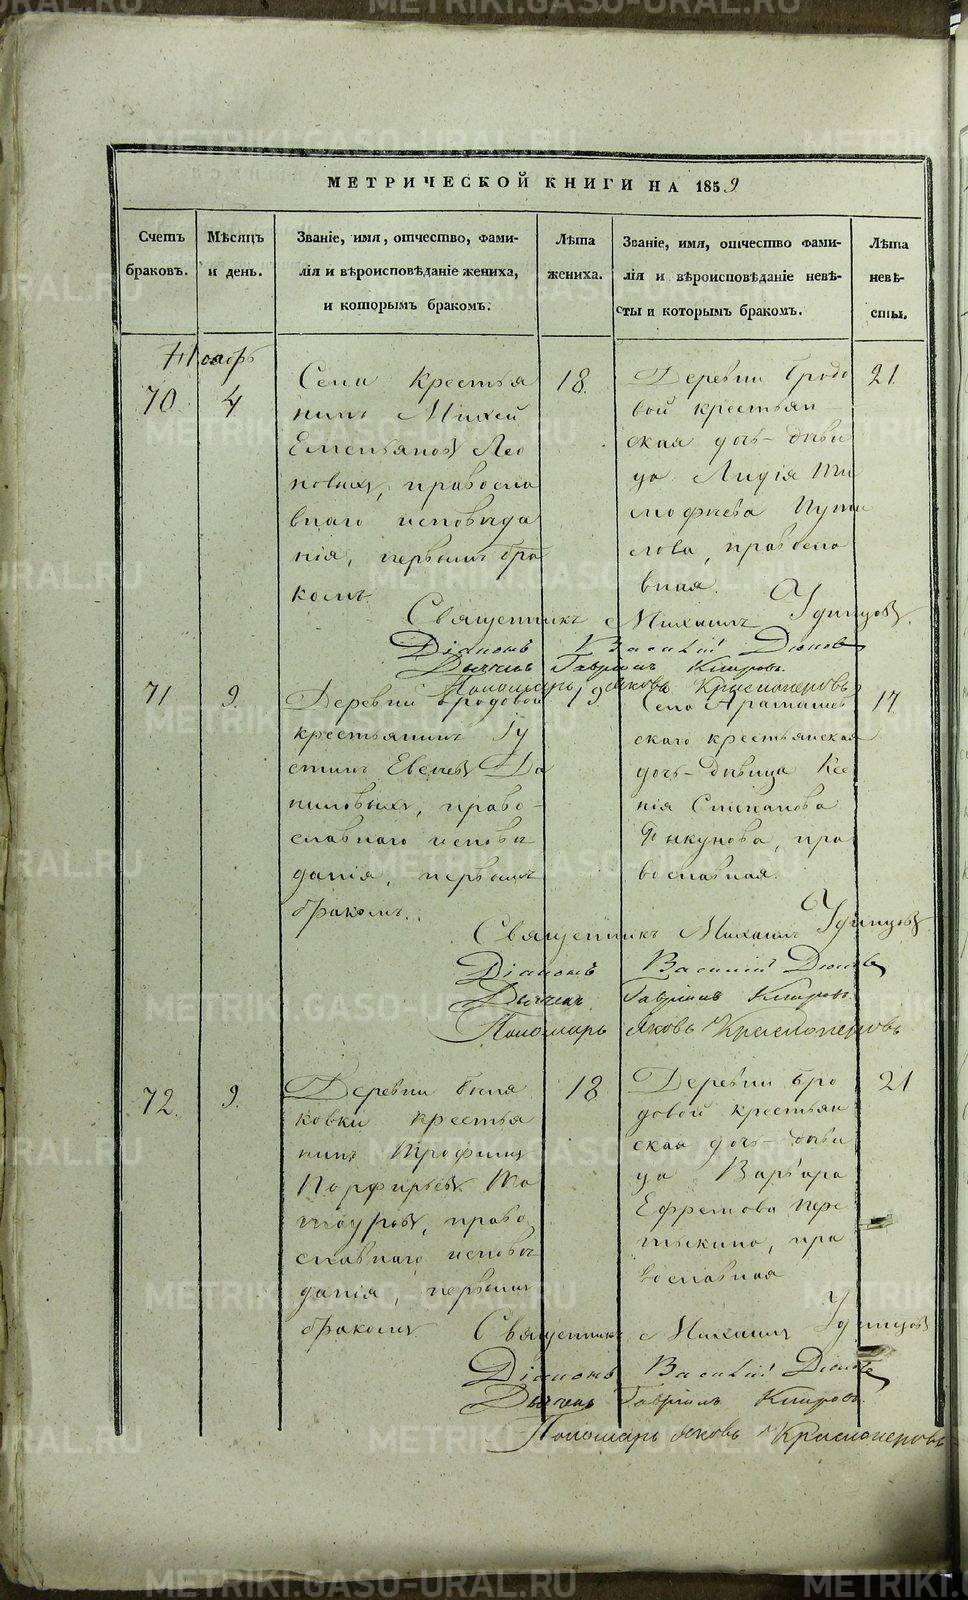 METRIKI.GASO-URAL.RU
МЕТРИЧЕСКОЙ КНИГИ НА 1859
Счетъ браковъ.
Мѣсяцъ и день.
Званіе, имя, отчество, фами-
лія и вѣроисповѣданіе жениха,
и которымъ бракомъ.
Лѣта жениха.
Званіе, имя, отчество фами-
лія и вѣроисповѣданіе невѣ-
сты и которымъ бракомъ.
Лѣта невѣ-
сты.
Ноябрь
70 4
Села Крестья
нинъ Михей
Емельяновъ Лео
новыхъ, правосла
внаго исповѣда
нія, первымъ бра
комъ.
18.
Деревни Бродо
вой крестьян
ская дочь-дѣви
ца Лидія Ти
мофѣева Пути
лова, правосла
вная.
21.
Священникъ Михаилъ Удинцовъ.
Діаконъ Василій
Дьячекъ Гавріилъ
Пономарь Яковъ Красноперовъ
71 9.
Деревни Бродовой
крестьянинъ Іу
стинъ Да
ниловыхъ, право-
славнаго исповѣ
данія, первымъ
бракомъ.
19.
Села Арамашев
скаго крестьянская
дочь-дѣвица Ксе
нія Степанова
пра
вославная.
17.
Священникъ Михаилъ Удинцовъ
Діаконъ Василій
Дьячекъ Гавріилъ
Пономарь Яковъ Красноперовъ
72. 9.
Деревни
ковки крестья
нинъ Трофимъ
Порфирьевъ
право
славнаго исповѣ
данія, первымъ
бракомъ
18
Деревни Бро
довой крестьян
ская дочь-дѣви
ца Варвара
Ефремова
пра
вославная
21
Священникъ Михаилъ Удинцовъ
Діаконъ Василій
Дьячекъ Гавріилъ
Пономарь Яковъ Красноперовъ